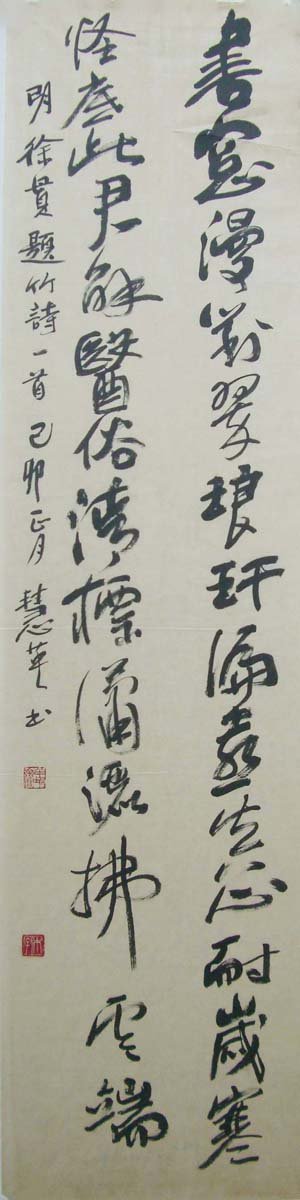 書窓漫對翠琅玕偏愛貞心耐歲寒
怪底此君能醫俗清標瀟灑拂雲端
明徐賁題竹詩一首己卯正月慧華书